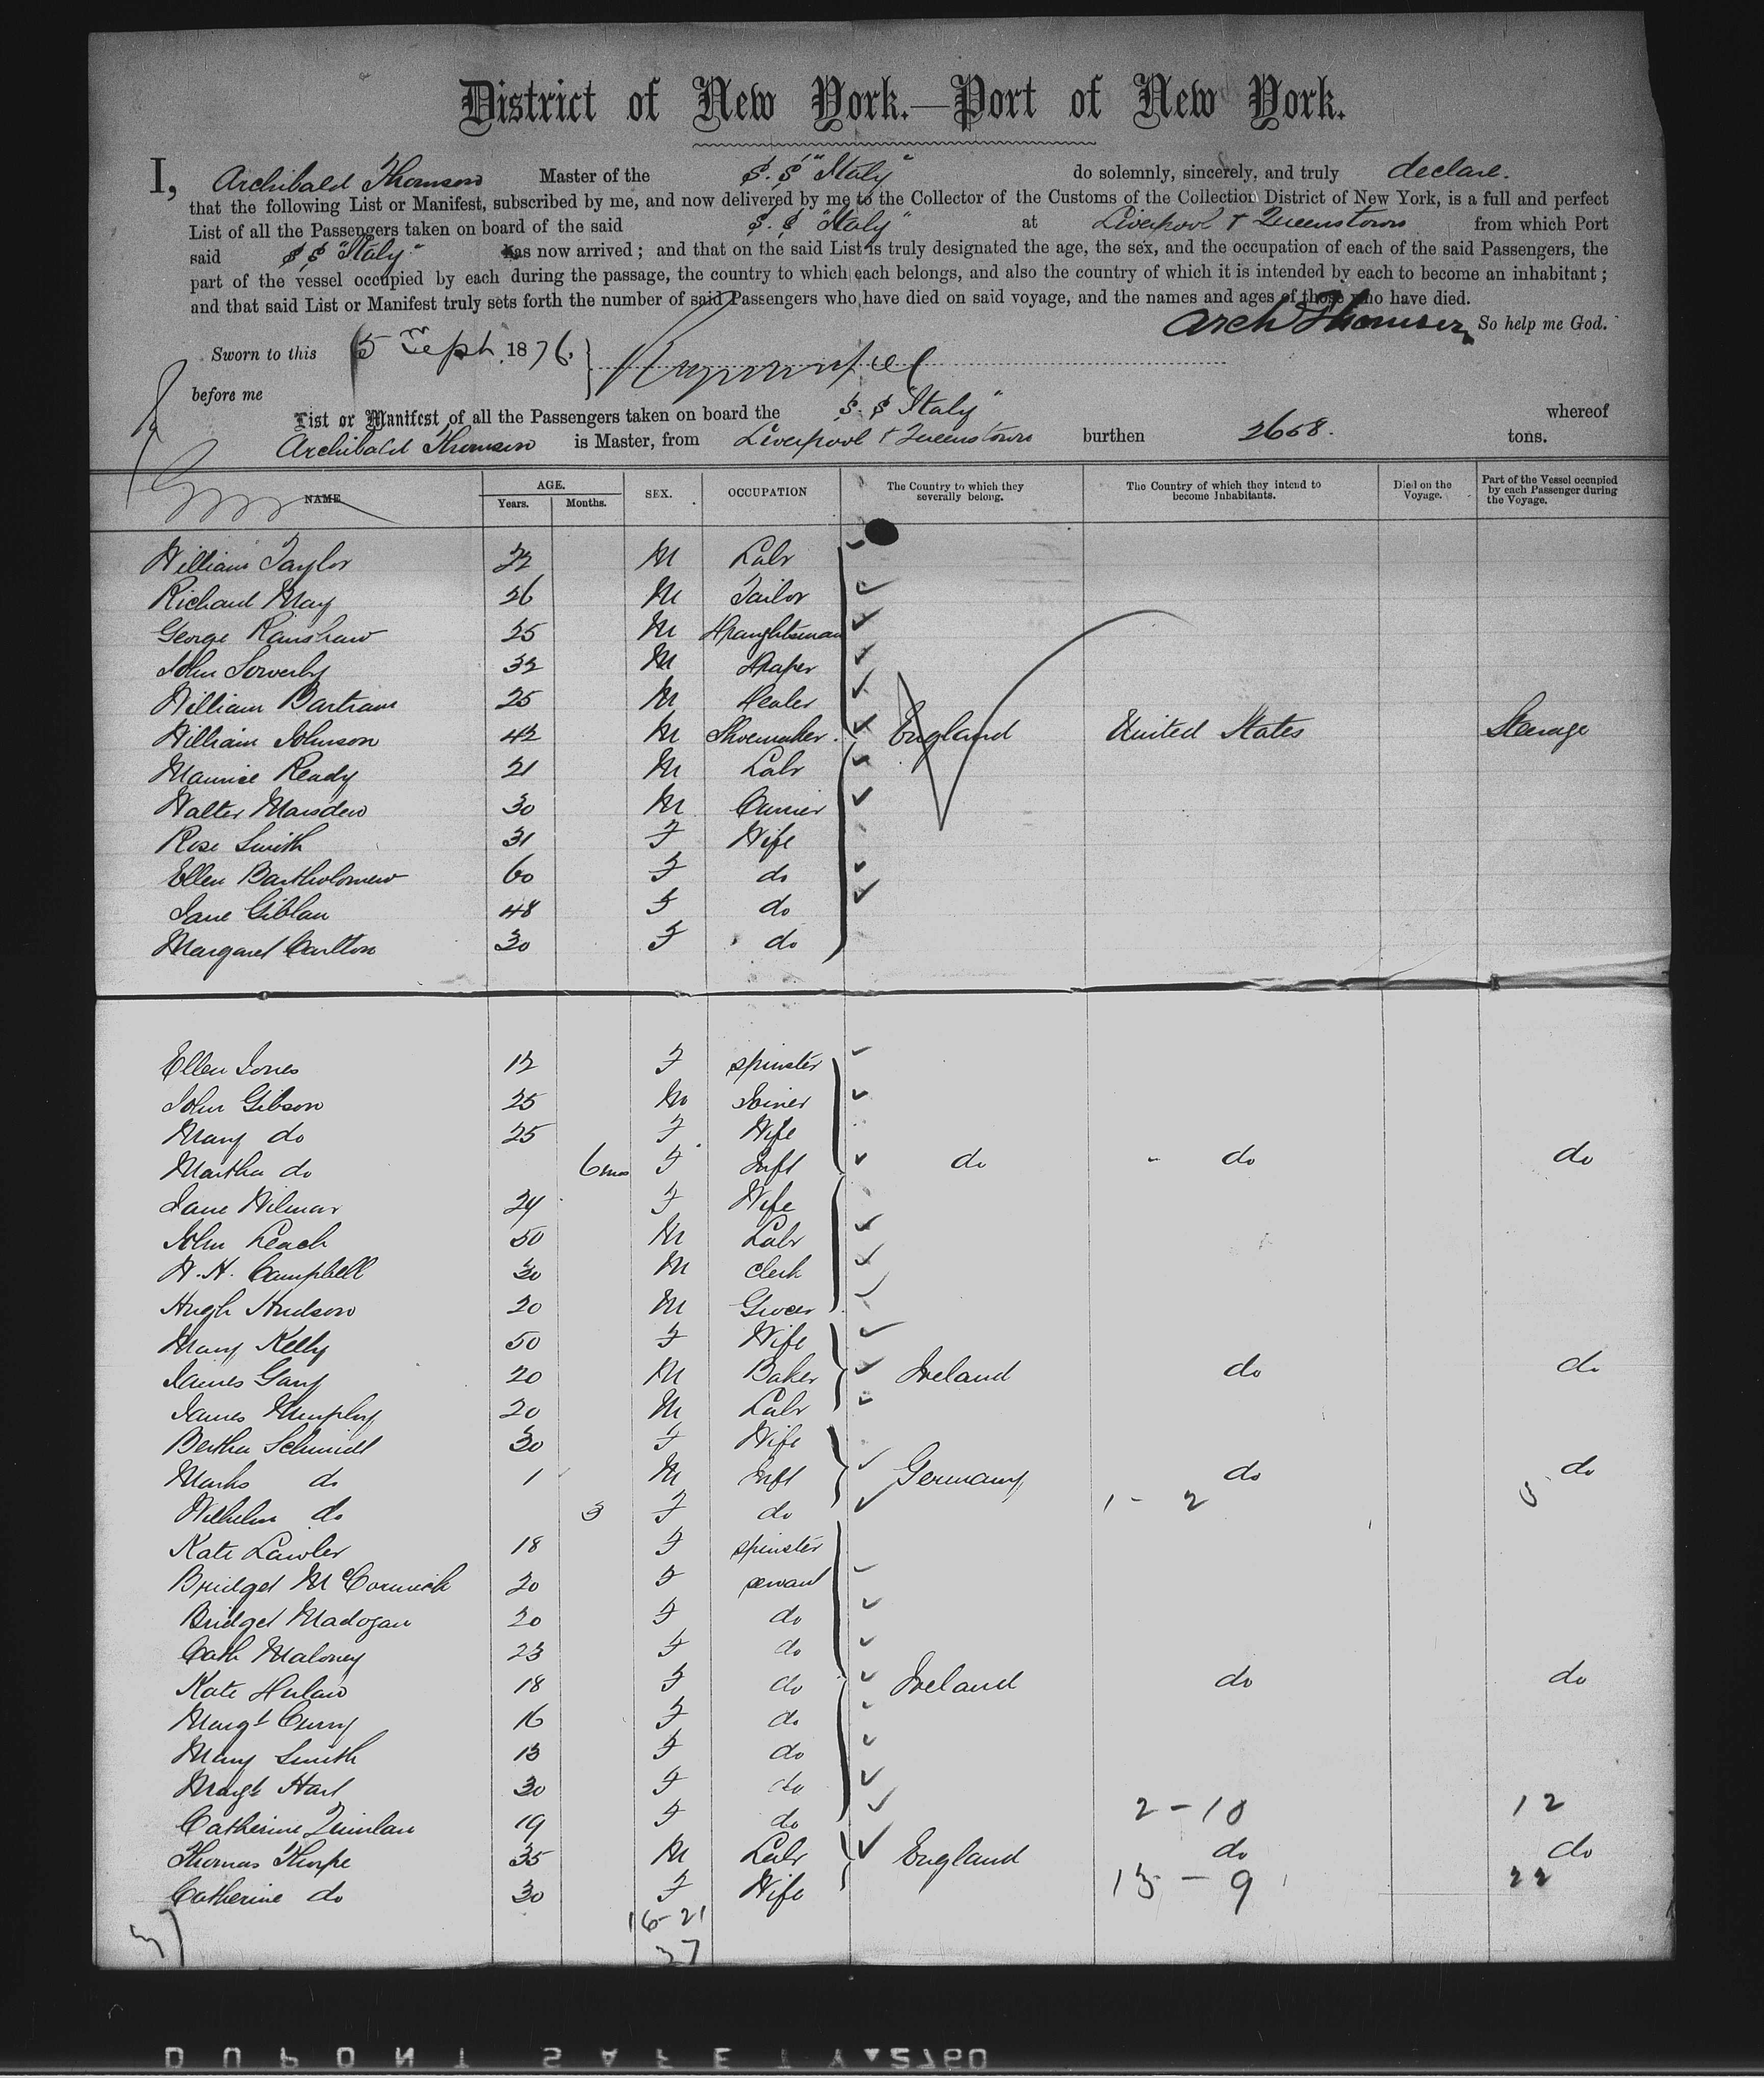 District of New York.—Port of New York.
I, Archibald Thomson Master of the S.S "Italy" do solemnly, sincerely, and truly declare.
that the following List or Manifest, subscribed by me, and now delivered by me to the Collector of the Customs of the Collection District of New York, is a full and perfect
List of all the Passengers taken on board of the said S.S "Italy" at Liverpool & Queenstown from which Port
said S,S "Italy" has now arrived; and that on the said List is truly designated the age, the sex, and the occupation of each of the said Passengers, the
part of the vessel occupied by each during the passage, the country to which each belongs, and also the country of which it is intended by each to become an inhabitant;
and that said List or Manifest truly sets forth the number of said Passengers who have died on said voyage, and the names and ages of those who have died.
Arch Thomson So help me God.
Sworn to this 5 Sept. 1876.
before me
List or Manifest of all the Passengers taken on board the S.S "Italy" whereof
Archibald Thomson is Master, from Liverpool & Queenstown burthen 2658. tons.
NAME AGE. Years. Months. SEX. OCCUPATION The Country to which they severally belong. The Country of which they intend to become Inhabitants. Died on the Voyage. Part of the Vessel occupied by each Passenger during the Voyage.
William Taylor 22 M Labr
Richard May 26 M Tailor
George Ranshaw 25 M Draughtsman
John Sowerby 32 M Draper
William Bartram 25 M Dealer
William Johnson 42 M Shoemaker England United States Steerage
Maurice Ready 21 M Labr
Walter Marsden 30 M Currier
Rose Smith 31 F Wife
Ellen Bartholomew 60 F do
Jane Giblan 48 F do
Margaret Carlton 30 F do
Ellen Jones 12 F spinster
John Gibson 25 M Joiner
Mary do 25 F Wife
Martha do 6mos F Inft do do do
Jane Wilmar 24 F Wife
John Leach 50 M Labr
W.H. Campbell 30 M Clerk
Hugh Hudson 20 M Grocer
Mary Kelly 50 F Wife
James Gary 20 M Baker Ireland do do
James Murphy 20 M Labr
Bertha Schmidt 30 F Wife
Marks do 1 M Inft Germany do do
Wilhelm do 3 F do 1 - 2
Kate Lawler 18 F spinster
Bridget McCormick 20 F servant
Bridget Madogan 20 F do
Cath Maloney 23 F do
Kate 18 F do Ireland do do
Margt Curry 16 F do
Mary Smith 13 F do
Margt Hart 30 F do
Catherine Quinlan 19 F do 2 - 10 12
Thomas Thorpe 35 M Labr England do do
Catherine do 30 F Wife 13 - 9 22
16-21
37
DUPONT SAFETY 2760